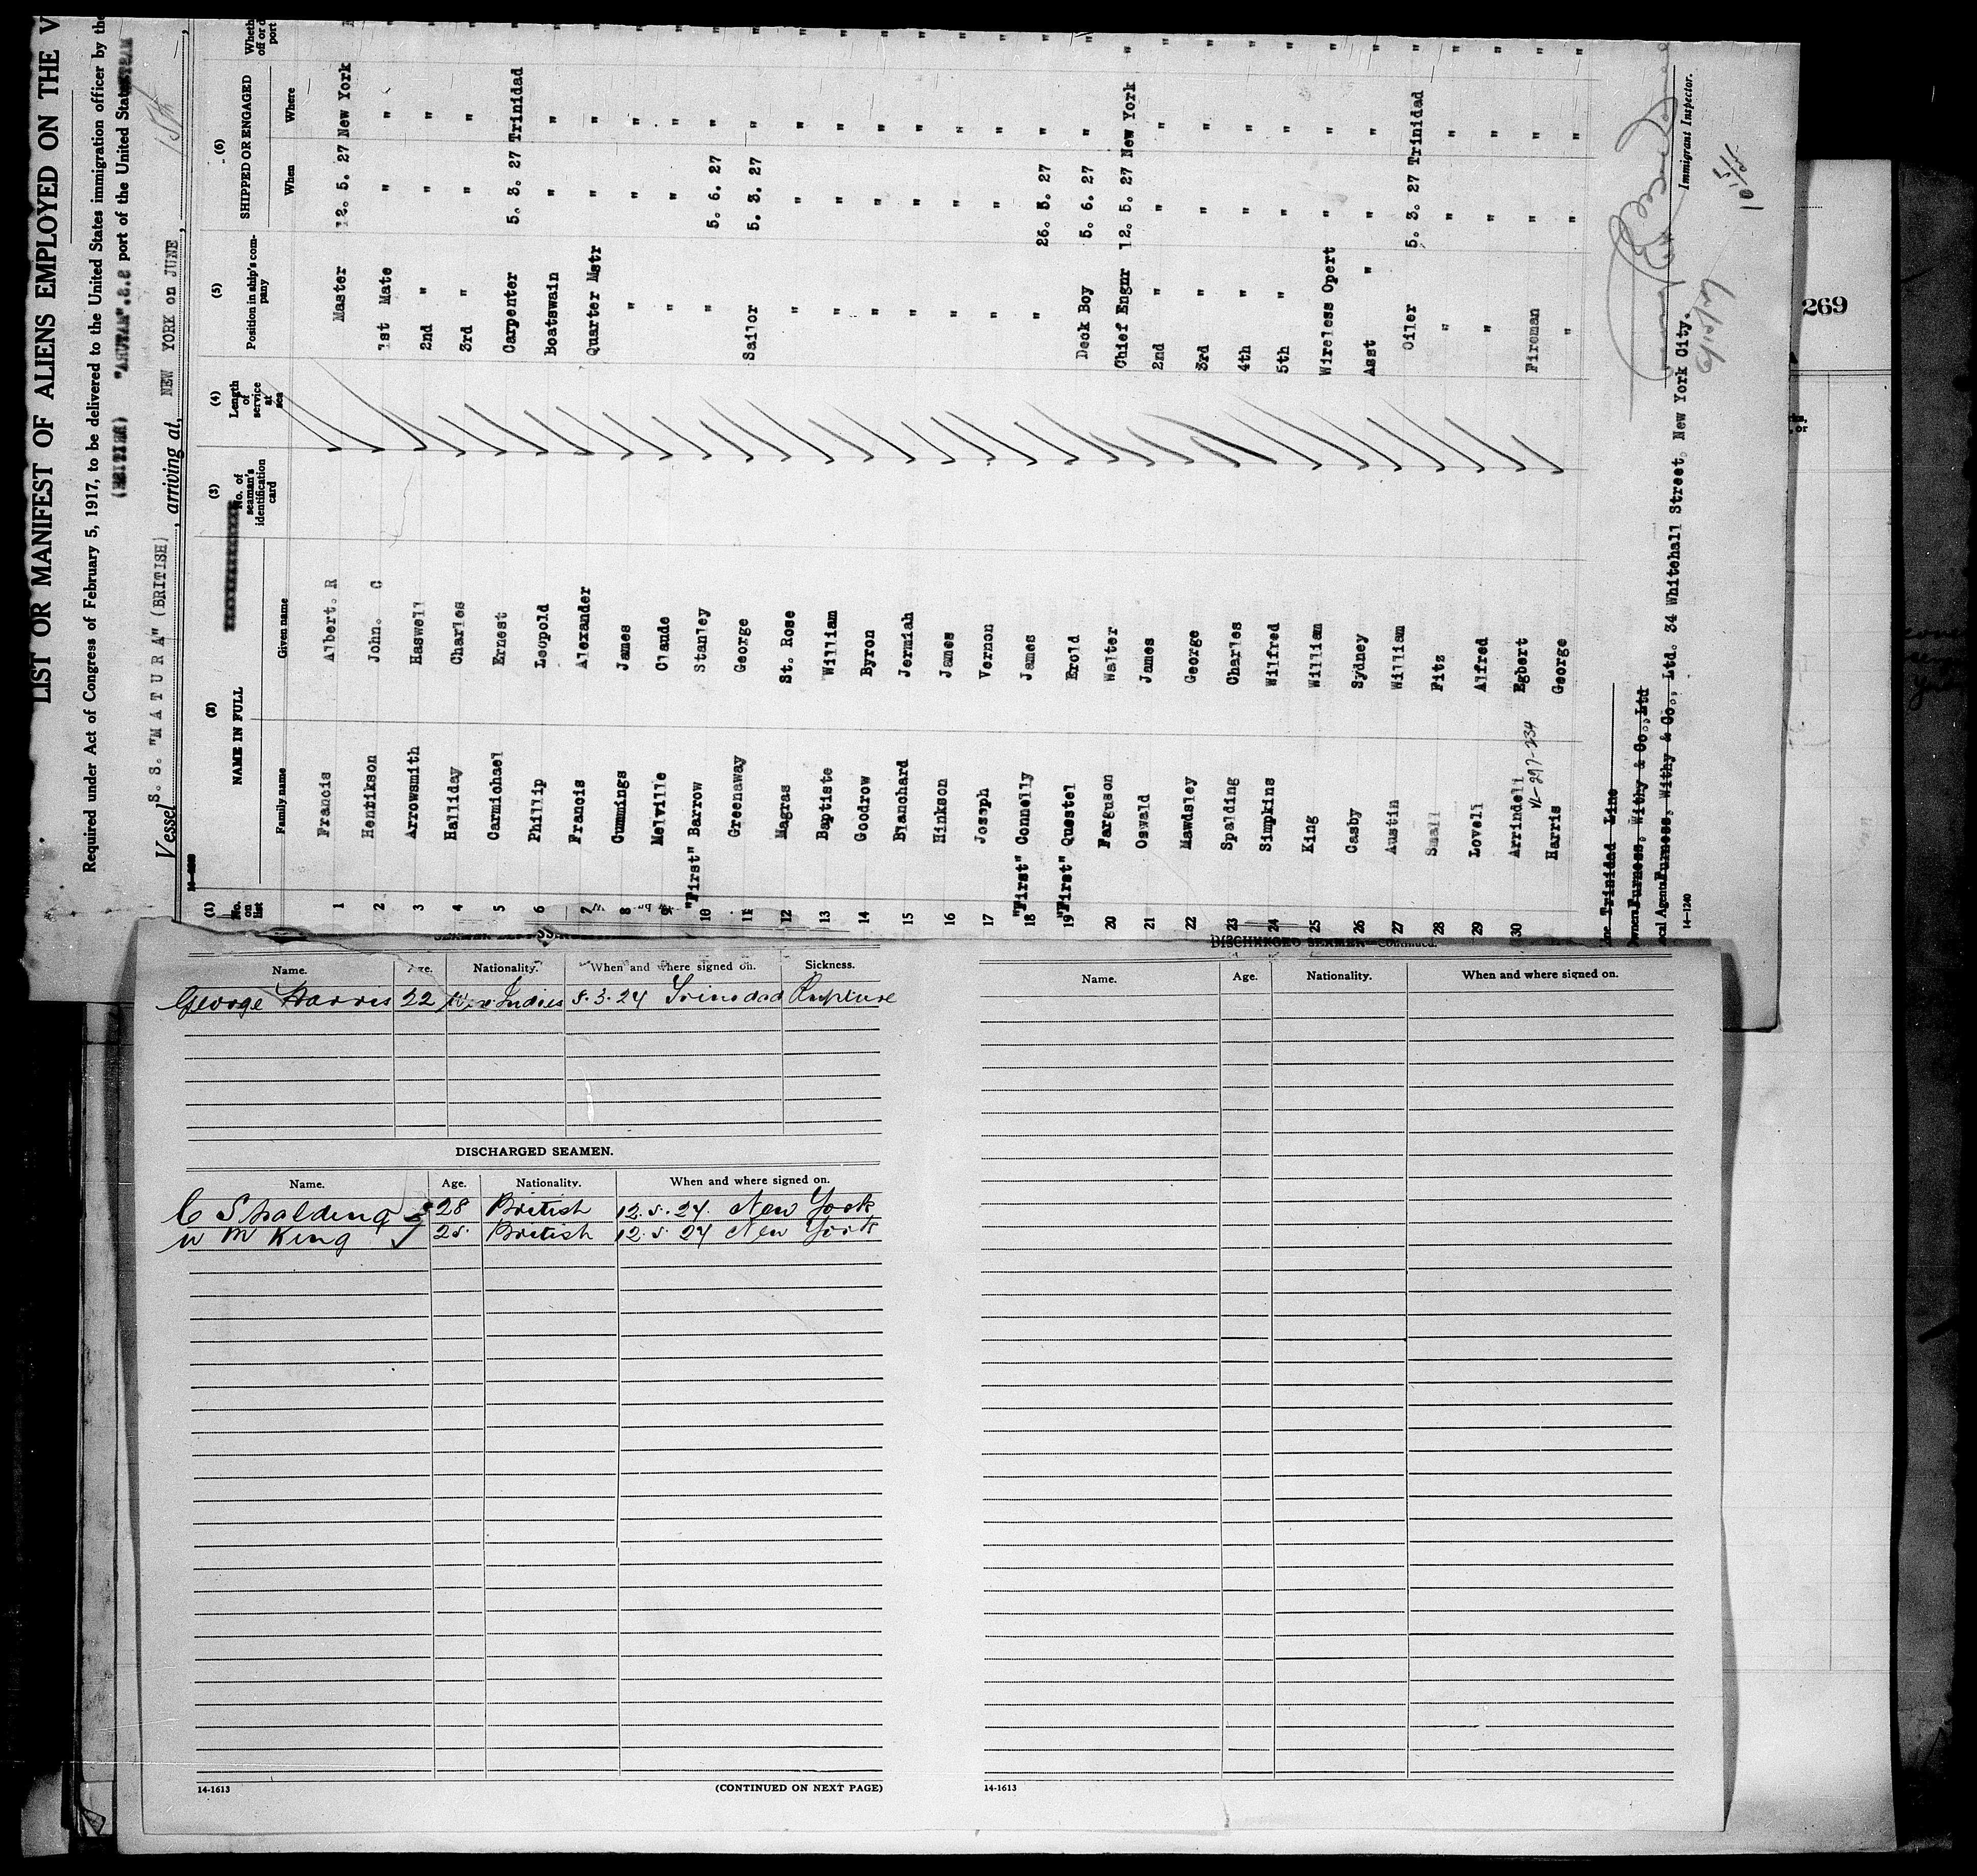 LIST OR MANIFEST OF ALIENS EMPLOYED ON THE V
Required under Act of Congress of February 5, 1917, to be delivered to the United States immigration officer by the
port of the United States
Vessel S. S. "M A T U R A" (BRITISH), arriving at, NEW YORK on JUNE 15th,
14-1240
(1) (2) (3) (4) (5) (6)
No. on list NAME IN FULL No. of seaman's identification card Length of service at sea Position in ship's company SHIPPED OR ENGAGED Wheth
Family name Given name When Where off or d port
1 Francis Albert. R Master 12. 5. 27 New York
2 Henrikson John. C 1st Mate " " "
3 Arrowsmith Haswell 2nd " " " "
4 Halliday Charles 3rd " " " "
5 Carmichael Ernest Carpenter 5. 3. 27 Trinidad "
6 Phillip Leopold Boatswain " " "
7 Francis Alexander Quarter Mstr " " "
8 Cummings James " " " "
9 Melville Claude " " " "
"First" 10 Barrow Stanley " 5. 6. 27 " "
11 Greenaway George Sailor 5. 3. 27 " "
12 Magras St. Rose " " " "
13 Baptiste William " " " "
14 Goodrow Byron " " " "
15 Blanchard Jermiah " " " "
16 Hinkson James " " " "
17 Joseph Vernon " " " "
"First" 18 Connelly James " 26. 5. 27 " "
"First" 19 Questel Erold Deck Boy 5. 6. 27 " "
20 Farguson Walter Chief Engnr 12. 5. 27 New York "
21 Oswald James 2nd " " " "
22 Mawdsley George 3rd " " " "
23 Spalding Charles 4th " " " "
24 Simpkins Wilfred 5th " " " "
25 King William Wireless Opert " " "
26 Casby Sydney Asst " " " "
27 Austin William Oiler 5. 3. 27 Trinidad "
28 Small Fitz " " " "
29 Lovell Alfred " " " "
30 Arrindell Egbert Fireman " " "
Harris George " " " "
Line Trinidad Line
Owner Furness, Withy & Co., Ltd
Local Agents Furness, Withy & Co., Ltd. 34 Whitehall Street, New York City.
Immigrant Inspector.
14-1240
269
Name. Age. Nationality. When and where signed on. Sickness.
George Harris 22 W. Indies 5.3.27 Trinidad Rupture
DISCHARGED SEAMEN.
Name. Age. Nationality. When and where signed on.
C Spalding 28 British 12.5.27. New York
Wm King 25. British 12.5.27 New York
14-1613 (CONTINUED ON NEXT PAGE)
DISCHARGED SEAMEN—Continued.
Name. Age. Nationality. When and where signed on.
14-1613